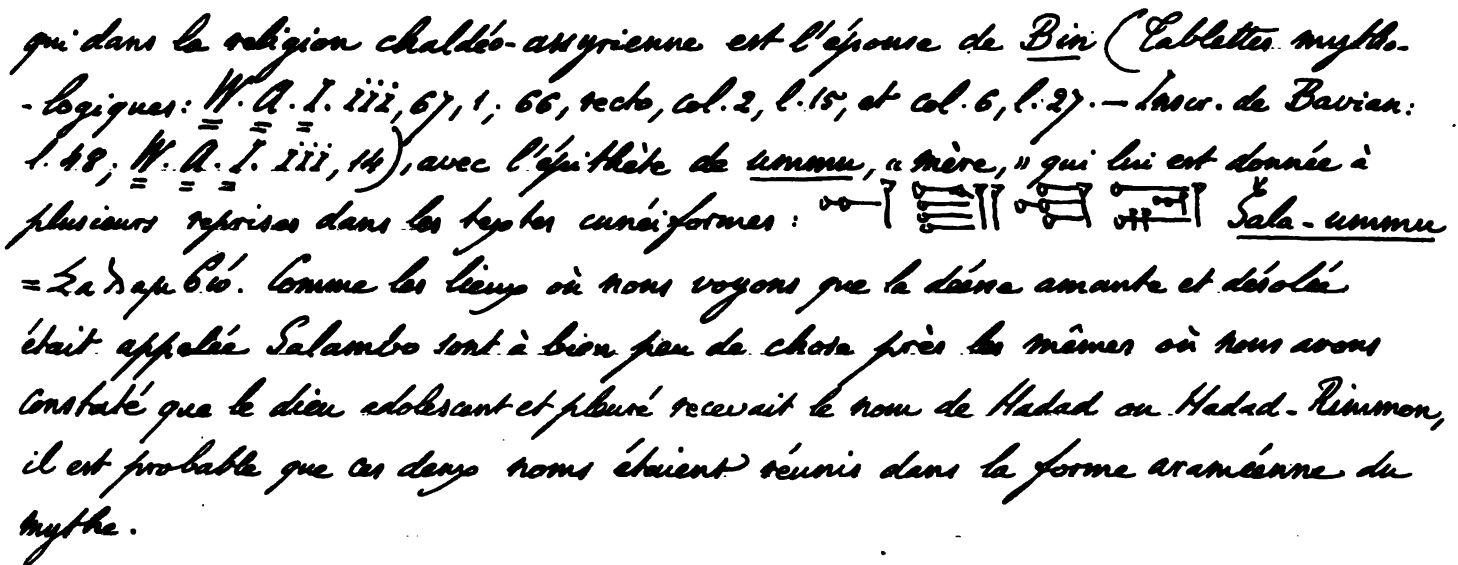 qui dans la religion chaldéo-assyrienne est l'épouse de Bin (Tablettes mytho-
-logiques: W. A. I. iii, 67, 1; 66, recto, col. 2, l. 15, et col. 6, l. 27. — Inscr. de Bavian:
l. 48; W. A. I. iii, 14), avec l'épithète de ummu, « mère, » qui lui est donnée à
plusieurs reprises dans les textes cunéiformes: Šala-ummu
= Σαλαμβώ. Comme les lieux où nous voyons que la déesse amante et désolée
était appelée Salambo sont à bien peu de chose près les mêmes où nous avons
constaté que le dieu adolescent et pleuré recevait le nom de Hadad ou Hadad-Rimmon,
il est probable que ces deux noms étaient réunis dans la forme araméenne du
mythe.